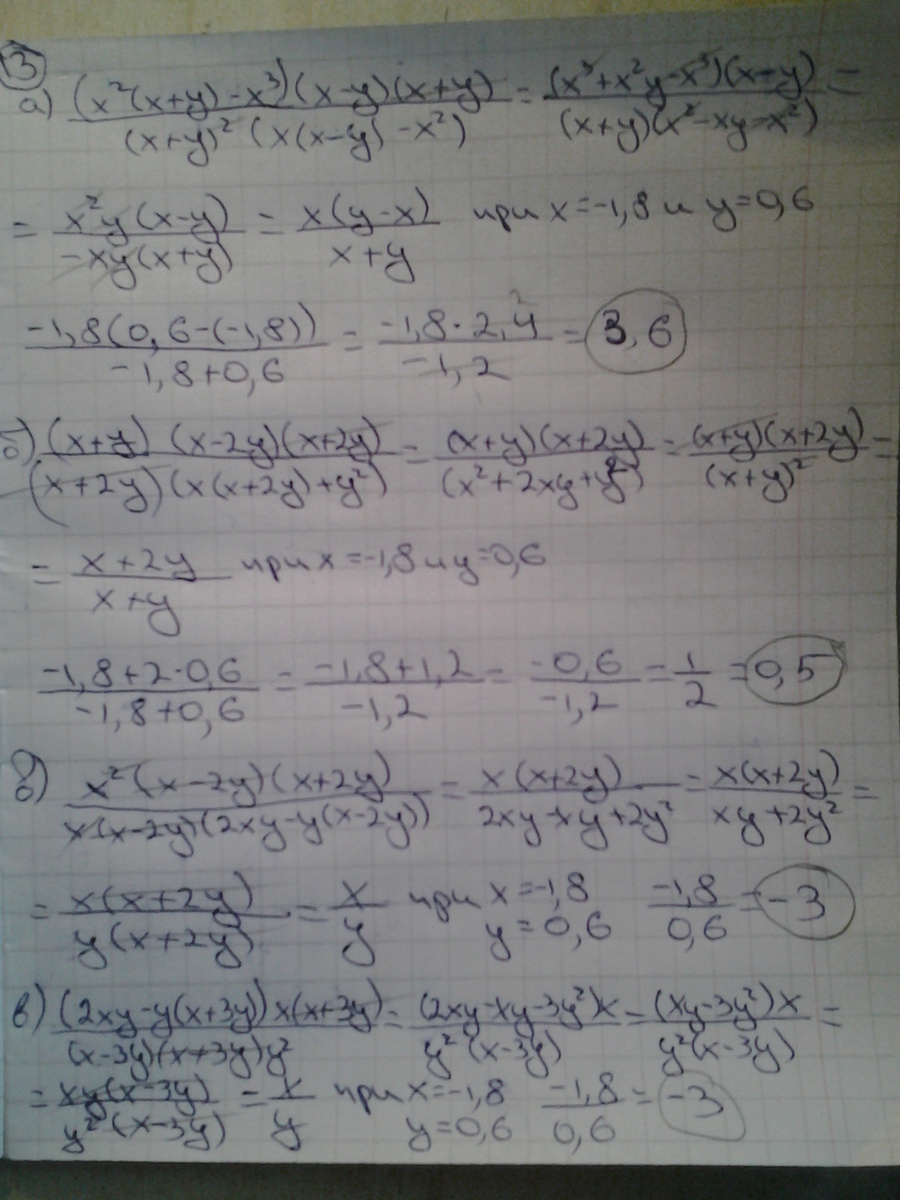 ③
а) (x²(x+y)-x³)(x-y)(x+y) / (x+y)² (x(x-y)-x²) = (x³+x²y-x³)(x-y) / (x+y)(x²-xy-x²) =
= x²y(x-y) / -xy(x+y) = x(y-x) / x+y при x=-1,8 и y=0,6
-1,8(0,6-(-1,8)) / -1,8+0,6 = -1,8·2,4 / -1,2 = 3,6
б) (x+y) (x-2y)(x+2y) / (x+2y)(x(x+2y)+y²) = (x+y)(x+2y) / (x²+2xy+y²) = (x+y)(x+2y) / (x+y)² =
= x+2y / x+y при x=-1,8 и y=0,6
-1,8+2·0,6 / -1,8+0,6 = -1,8+1,2 / -1,2 = -0,6 / -1,2 = 1/2 = 0,5
б) x²(x-2y)(x+2y) / x(x-2y)(2xy-y(x-2y)) = x(x+2y) / 2xy-xy+2y² = x(x+2y) / xy+2y² =
= x(x+2y) / y(x+2y) = x/y при x=-1,8 y=0,6 -1,8/0,6 = -3
в) (2xy-y(x+3y))x(x+3y) / (x-3y)(x+3y)y² = (2xy-xy-3y²)x / y²(x-3y) = (xy-3y²)x / y²(x-3y) =
= xy(x-3y) / y²(x-3y) = x/y при x=-1,8 y=0,6 -1,8/0,6 = -3